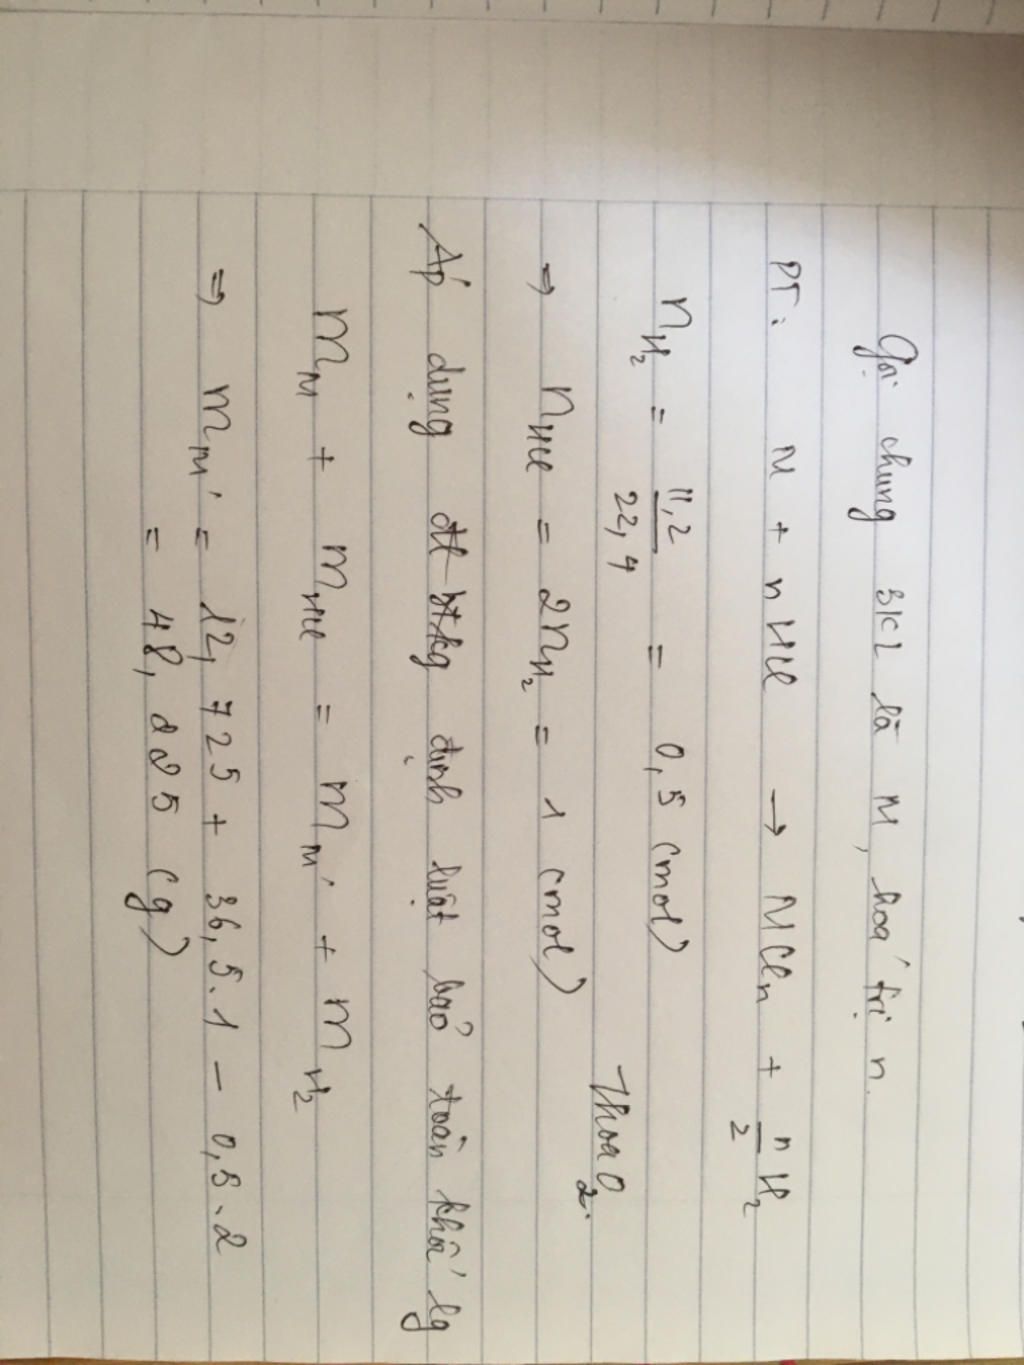 Gọi chung 3KL là M, hoá trị n.
PT: M + nHCl → MCln + n/2 H2
nH2 = 11,2/22,4 = 0,5 (mol)
Thoa O2.
⇒ nHCl = 2nH2 = 1 (mol)
Áp dụng định luật bảo toàn khối lg
mM + mHCl = mM' + mH2
⇒ mM' = 12,725 + 36,5.1 - 0,5.2
= 48,225 (g)